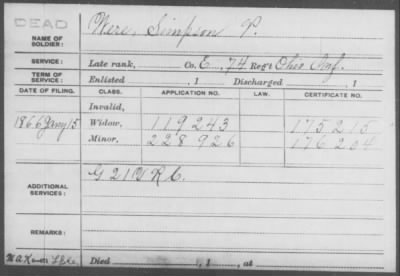 DEAD
NAME OF SOLDIER: Were, Simpson P.
SERVICE: Late rank, Co. E, 74 Reg't Ohio Inf.
TERM OF SERVICE: Enlisted , 1 Discharged , 1
DATE OF FILING. CLASS. APPLICATION NO. LAW. CERTIFICATE NO.
Invalid,
1866 Jany 15 Widow, 119243 175215
Minor, 228926 176204
ADDITIONAL SERVICES: G 21 V R C.
REMARKS:
Died , 1 , at